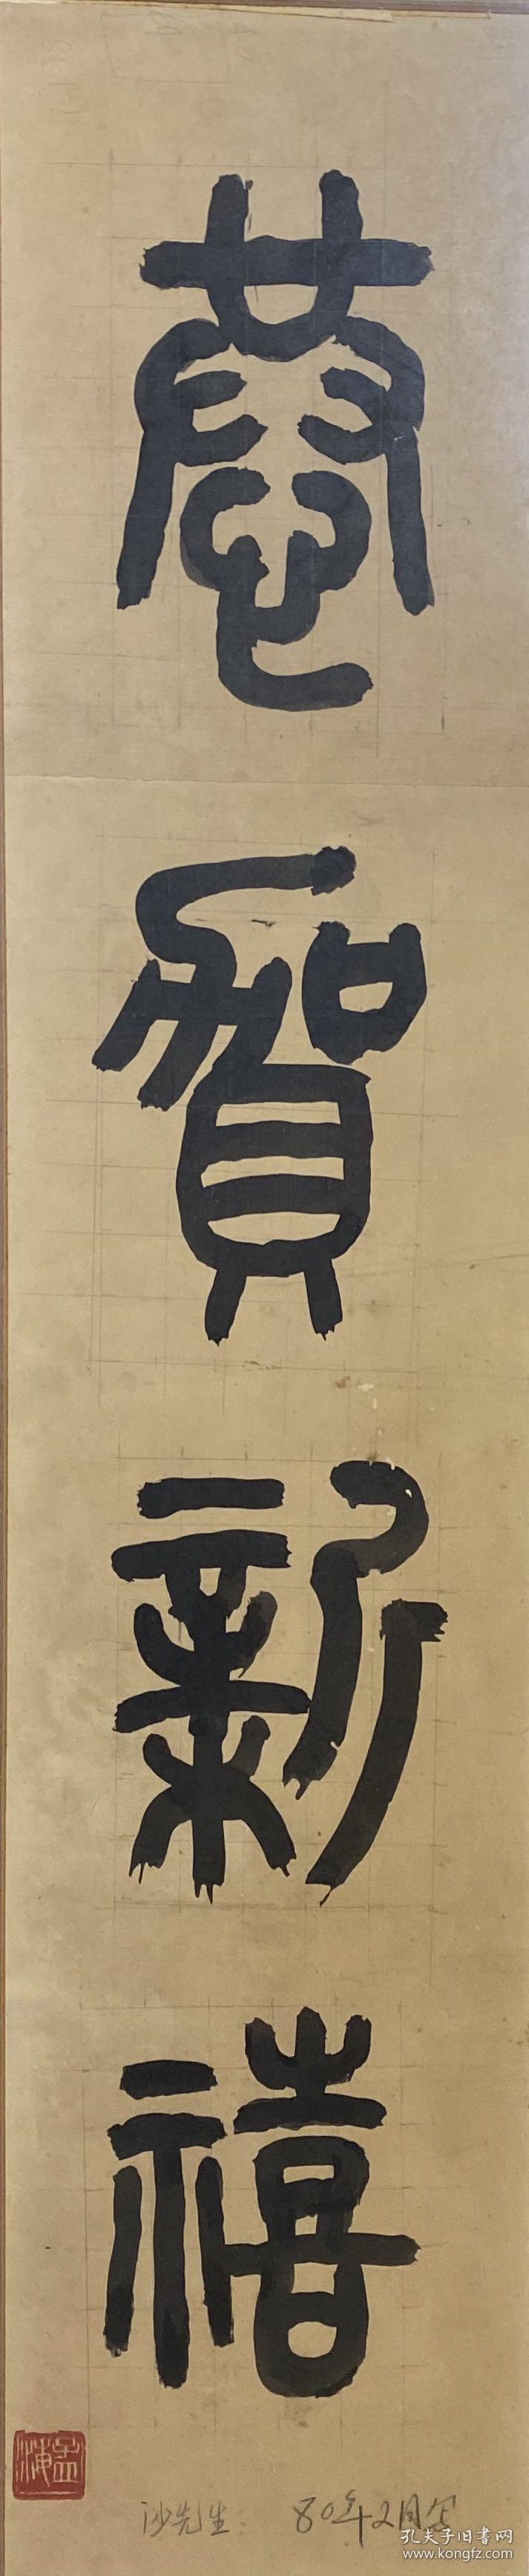 恭賀新禧
孟海
沙先生 80年2月写
孔夫子旧书网
www.kongfz.com